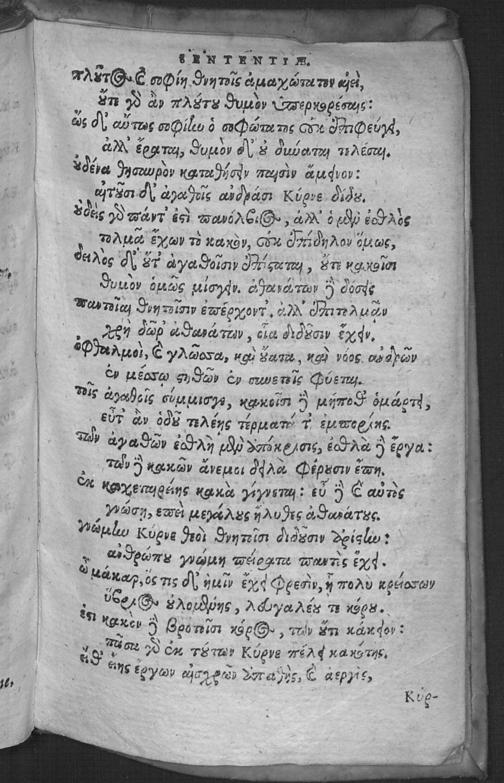 SENTENTIÆ.
πλοῦτος καὶ σοφίη θνητοῖς ἀμαχώτατον αἰεὶ,
οὔτε γὰρ ἂν πλούτου θυμὸν ὑπερκορέσαις:
ὣς δ' αὔτως σοφίην ὁ σοφώτατος οὐκ ἀποφεύγει,
ἀλλ' ἔραται, θυμὸν δ' οὐ δύναται τελέσαι.
οὐδένα θησαυρὸν καταθήσειν παισὶν ἄμεινον:
αἰτοῦσι δ' ἀγαθοῖς ἀνδράσι Κύρνε δίδου.
οὐδεὶς γὰρ πάντ' ἐστὶ πανόλβιος, ἀλλ' ὁ μὲν ἐσθλὸς
τολμᾷ ἔχων τὸ κακὸν, οὐκ ἐπίδηλον ὅμως,
δειλὸς δ' οὔτ' ἀγαθοῖσιν ἐπίσταται, οὔτε κακοῖσι
θυμὸν ὁμῶς μίσγειν. ἀθανάτων δὲ δόσεις
παντοῖαι θνητοῖσιν ἐπέρχοντ'. ἀλλ' ἐπιτολμᾶν
χρὴ δῶρ' ἀθανάτων, οἷα διδοῦσιν ἔχειν.
ὀφθαλμοὶ, καὶ γλῶσσα, καὶ οὔατα, καὶ νόος ἀνδρῶν
ἐν μέσσῳ στηθῶν ἐν συνετοῖς φύεται.
τοῖς ἀγαθοῖς σύμμισγε, κακοῖσι δὲ μήποθ' ὁμάρτει,
εὖτ' ἂν ὁδοῦ τελέῃς τέρματά τ' ἐμπορίης.
τῶν ἀγαθῶν ἐσθλὴ μὲν ἀπόκρισις, ἐσθλὰ δὲ ἔργα:
τῶν δὲ κακῶν ἄνεμοι δειλὰ φέρουσιν ἔπη.
ἐκ καχεταιρείης κακὰ γίγνεται: εὖ δὲ καὶ αὐτὸς
γνώσῃ, ἐπεὶ μεγάλους ἤλιτες ἀθανάτους.
γνώμην Κύρνε θεοὶ θνητοῖσι διδοῦσιν ἀρίστην:
ἀνθρώπου γνώμη πείρατα παντὸς ἔχει.
ὦ μάκαρ, ὅς τις δὴ μιν ἔχει φρεσὶν, ἦ πολὺ κρείσσων
ὕβριος οὐλομένης, λευγαλέου τε κόρου.
ἔστι κακὸν δὲ βροτοῖσι κόρος, τῶν οὔτι κάκιον:
πᾶσα γὰρ ἐκ τούτων Κύρνε πέλει κακότης.
εἴθ' εἴης ἔργων αἰσχρῶν ἀπαθὴς, καὶ ἀεργὲς,
Κύρ-